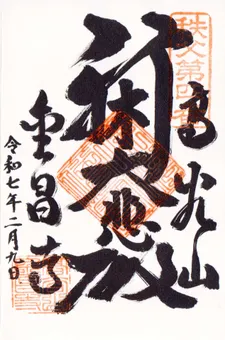 秩父第四番
高谷山
新木大悲殿
金昌寺
令和七年二月九日